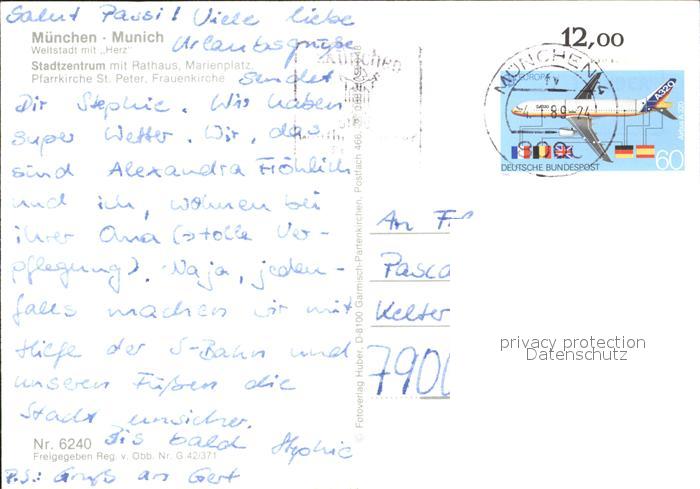 Salut Passi! Viele liebe
München · Munich
Weltstadt mit „Herz"
Urlaubsgrüße
Stadtzentrum mit Rathaus, Marienplatz,
Pfarrkirche St. Peter, Frauenkirche
sendet
Dir Stephie. Wir haben
super Wetter. Wir, das
sind Alexandra Fröhlich
und ich, wohnen bei
ihrer Oma (→ tolle Ver-
pflegung). Naja, jeden-
falls machen wir mit
Hilfe der S-Bahn und
unseren Füßen die
Stadt unsicher.
Bis bald Stephie
Nr. 6240
Freigegeben Reg. v. Obb. Nr. G 42/371
P.S.: Gruß an Gert
© Fotoverlag Huber, D-8100 Garmisch-Partenkirchen, Postfach 466,
München
12,00
MÜNCHEN
EUROPA
A320
Airbus A 320
DEUTSCHE BUNDESPOST
60
An
Pasca
Kelter
7900
privacy protection
Datenschutz